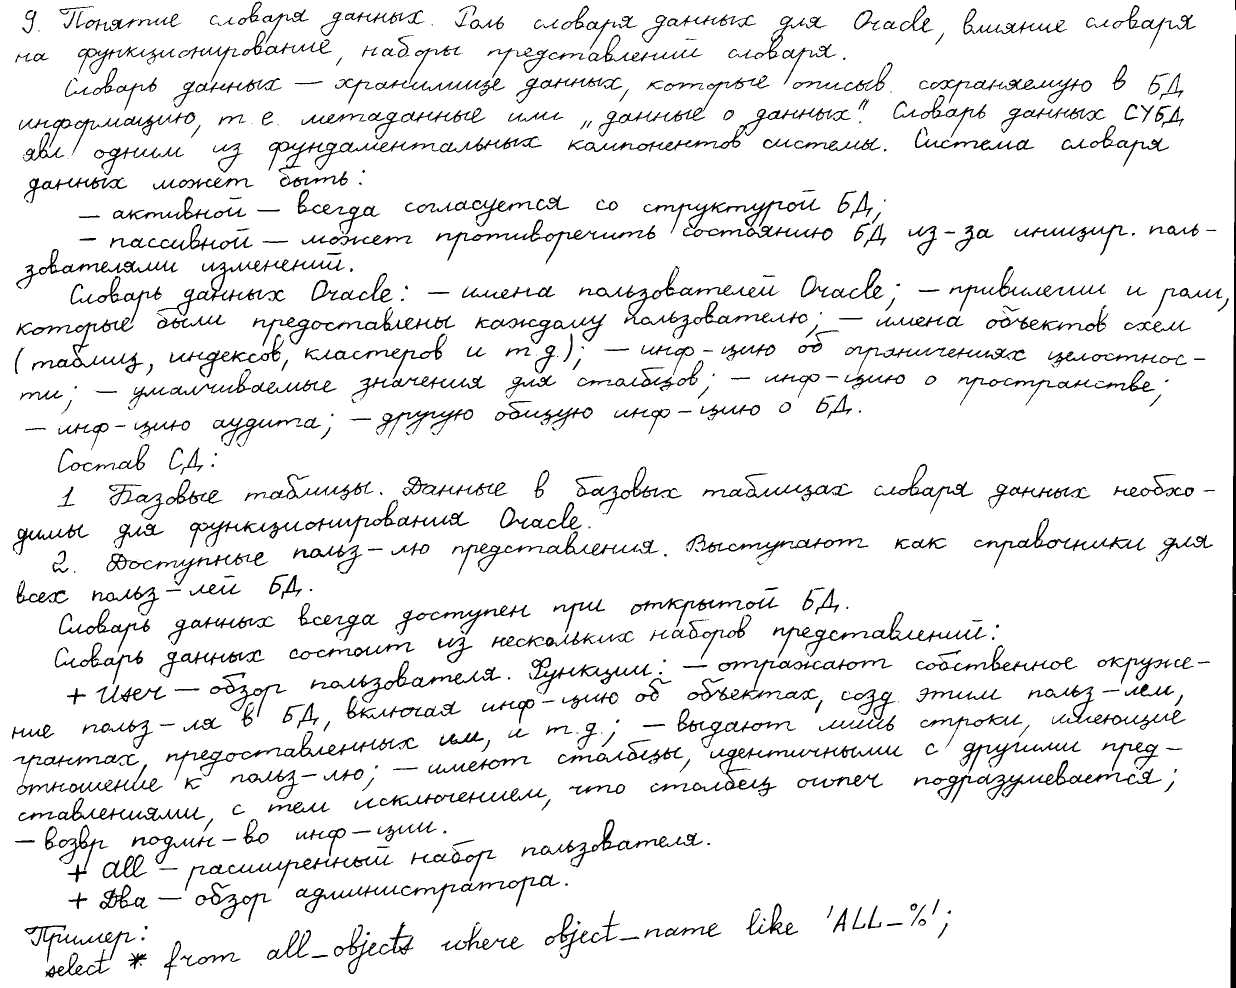 9. Понятие словаря данных. Роль словаря данных для Oracle, влияние словаря
на функционирование, наборы представлений словаря.
Словарь данных — хранилище данных, которые описыв. сохраняемую в БД
информацию, т. е. метаданные или „данные о данных". Словарь данных СУБД
явл одним из фундаментальных компонентов системы. Система словаря
данных может быть:
— активной — всегда согласуется со структурой БД;
— пассивной — может противоречить состоянию БД из-за иницир. поль-
зователями изменений.
Словарь данных Oracle: — имена пользователей Oracle; — привилегии и роли,
которые были предоставлены каждому пользователю; — имена объектов схем
(таблиц, индексов, кластеров и т д.); — инф-цию об ограничениях целостнос-
ти; — умалчиваемые значения для столбцов; — инф-цию о пространстве;
— инф-цию аудита; — другую общую инф-цию о БД.
Состав СД:
1 Базовые таблицы. Данные в базовых таблицах словаря данных необхо-
димы для функционирования Oracle.
2. Доступные польз-лю представления. Выступают как справочники для
всех польз-лей БД.
Словарь данных всегда доступен при открытой БД.
Словарь данных состоит из нескольких наборов представлений:
+ User — обзор пользователя. Функции: — отражают собственное окруже-
ние польз-ля в БД, включая инф-цию об объектах, созд. этим польз-лем,
грантах, предоставленных им, и т.д.; — выдают лишь строки, имеющие
отношение к польз-лю; — имеют столбцы, идентичными с другими пред-
ставлениями, с тем исключением, что столбец owner подразумевается;
— возвр подмн-во инф-ции.
+ All — расширенный набор пользователя.
+ Dba — обзор администратора.
Пример:
select * from all_objects where object_name like 'ALL_%';